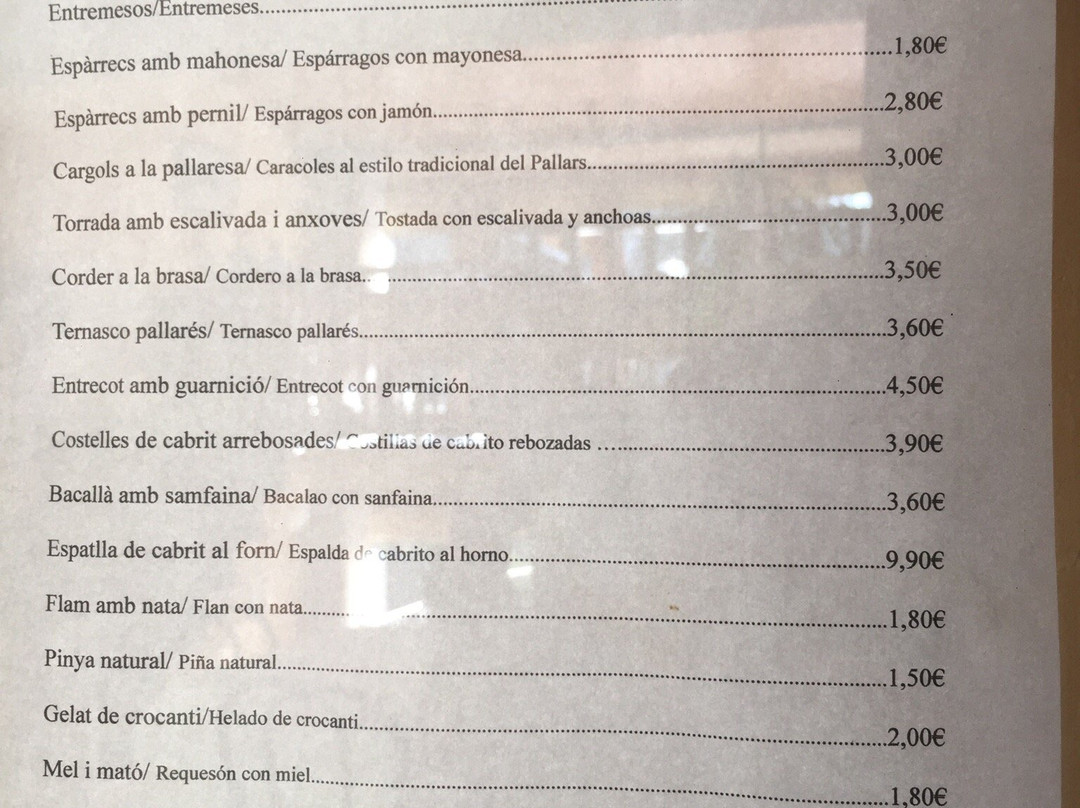 Entremesos/Entremeses..........
Espàrrecs amb mahonesa/ Espárragos con mayonesa..........1,80€
Espàrrecs amb pernil/ Espárragos con jamón..........2,80€
Cargols a la pallaresa/ Caracoles al estilo tradicional del Pallars..........3,00€
Torrada amb escalivada i anxoves/ Tostada con escalivada y anchoas..........3,00€
Corder a la brasa/ Cordero a la brasa..........3,50€
Ternasco pallarés/ Ternasco pallarés..........3,60€
Entrecot amb guarnició/ Entrecot con guarnición..........4,50€
Costelles de cabrit arrebosades/ Costillas de cabrito rebozadas ..........3,90€
Bacallà amb samfaina/ Bacalao con sanfaina..........3,60€
Espatlla de cabrit al forn/ Espalda de cabrito al horno..........9,90€
Flam amb nata/ Flan con nata..........1,80€
Pinya natural/ Piña natural..........1,50€
Gelat de crocanti/Helado de crocanti..........2,00€
Mel i mató/ Requesón con miel..........1,80€